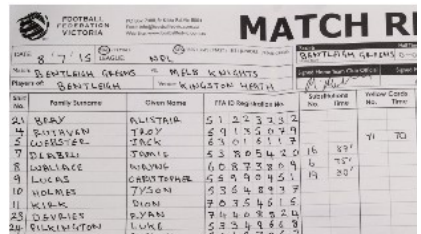 FOOTBALL
FEDERATION
VICTORIA
MATCH RE
DATE 8 / 7 / 15 LEAGUE NPL
BENTLEIGH GREENS
BENTLEIGH GREENS vs MELB KNIGHTS
Players of BENTLEIGH Venue KINGSTON HEATH
Shirt No. Family Surname Given Name FFA ID Registration No. Substitutions No. Time Yellow Cards No. Time
21 BRAY ALISTAIR 5 1 2 2 3 2 3 2
4 RUTHVEN TROY 5 9 1 3 5 0 7 9
5 WEBSTER JACK 6 3 0 1 6 1 1 7 70
7 DEABREU JAMIE 5 3 8 0 5 4 2 0 16 87'
8 WALLACE WAYNE 6 0 8 7 3 8 0 9 6 75'
9 LUCAS CHRISTOPHER 5 5 9 9 0 4 5 1 19 80'
10 HOLMES TYSON 5 3 6 4 8 9 3 7
11 KIRK DION 7 0 3 5 4 5 1 5
23 DEVRIES RYAN 7 4 4 0 8 8 2 4
24 PILKINGTON LUKE